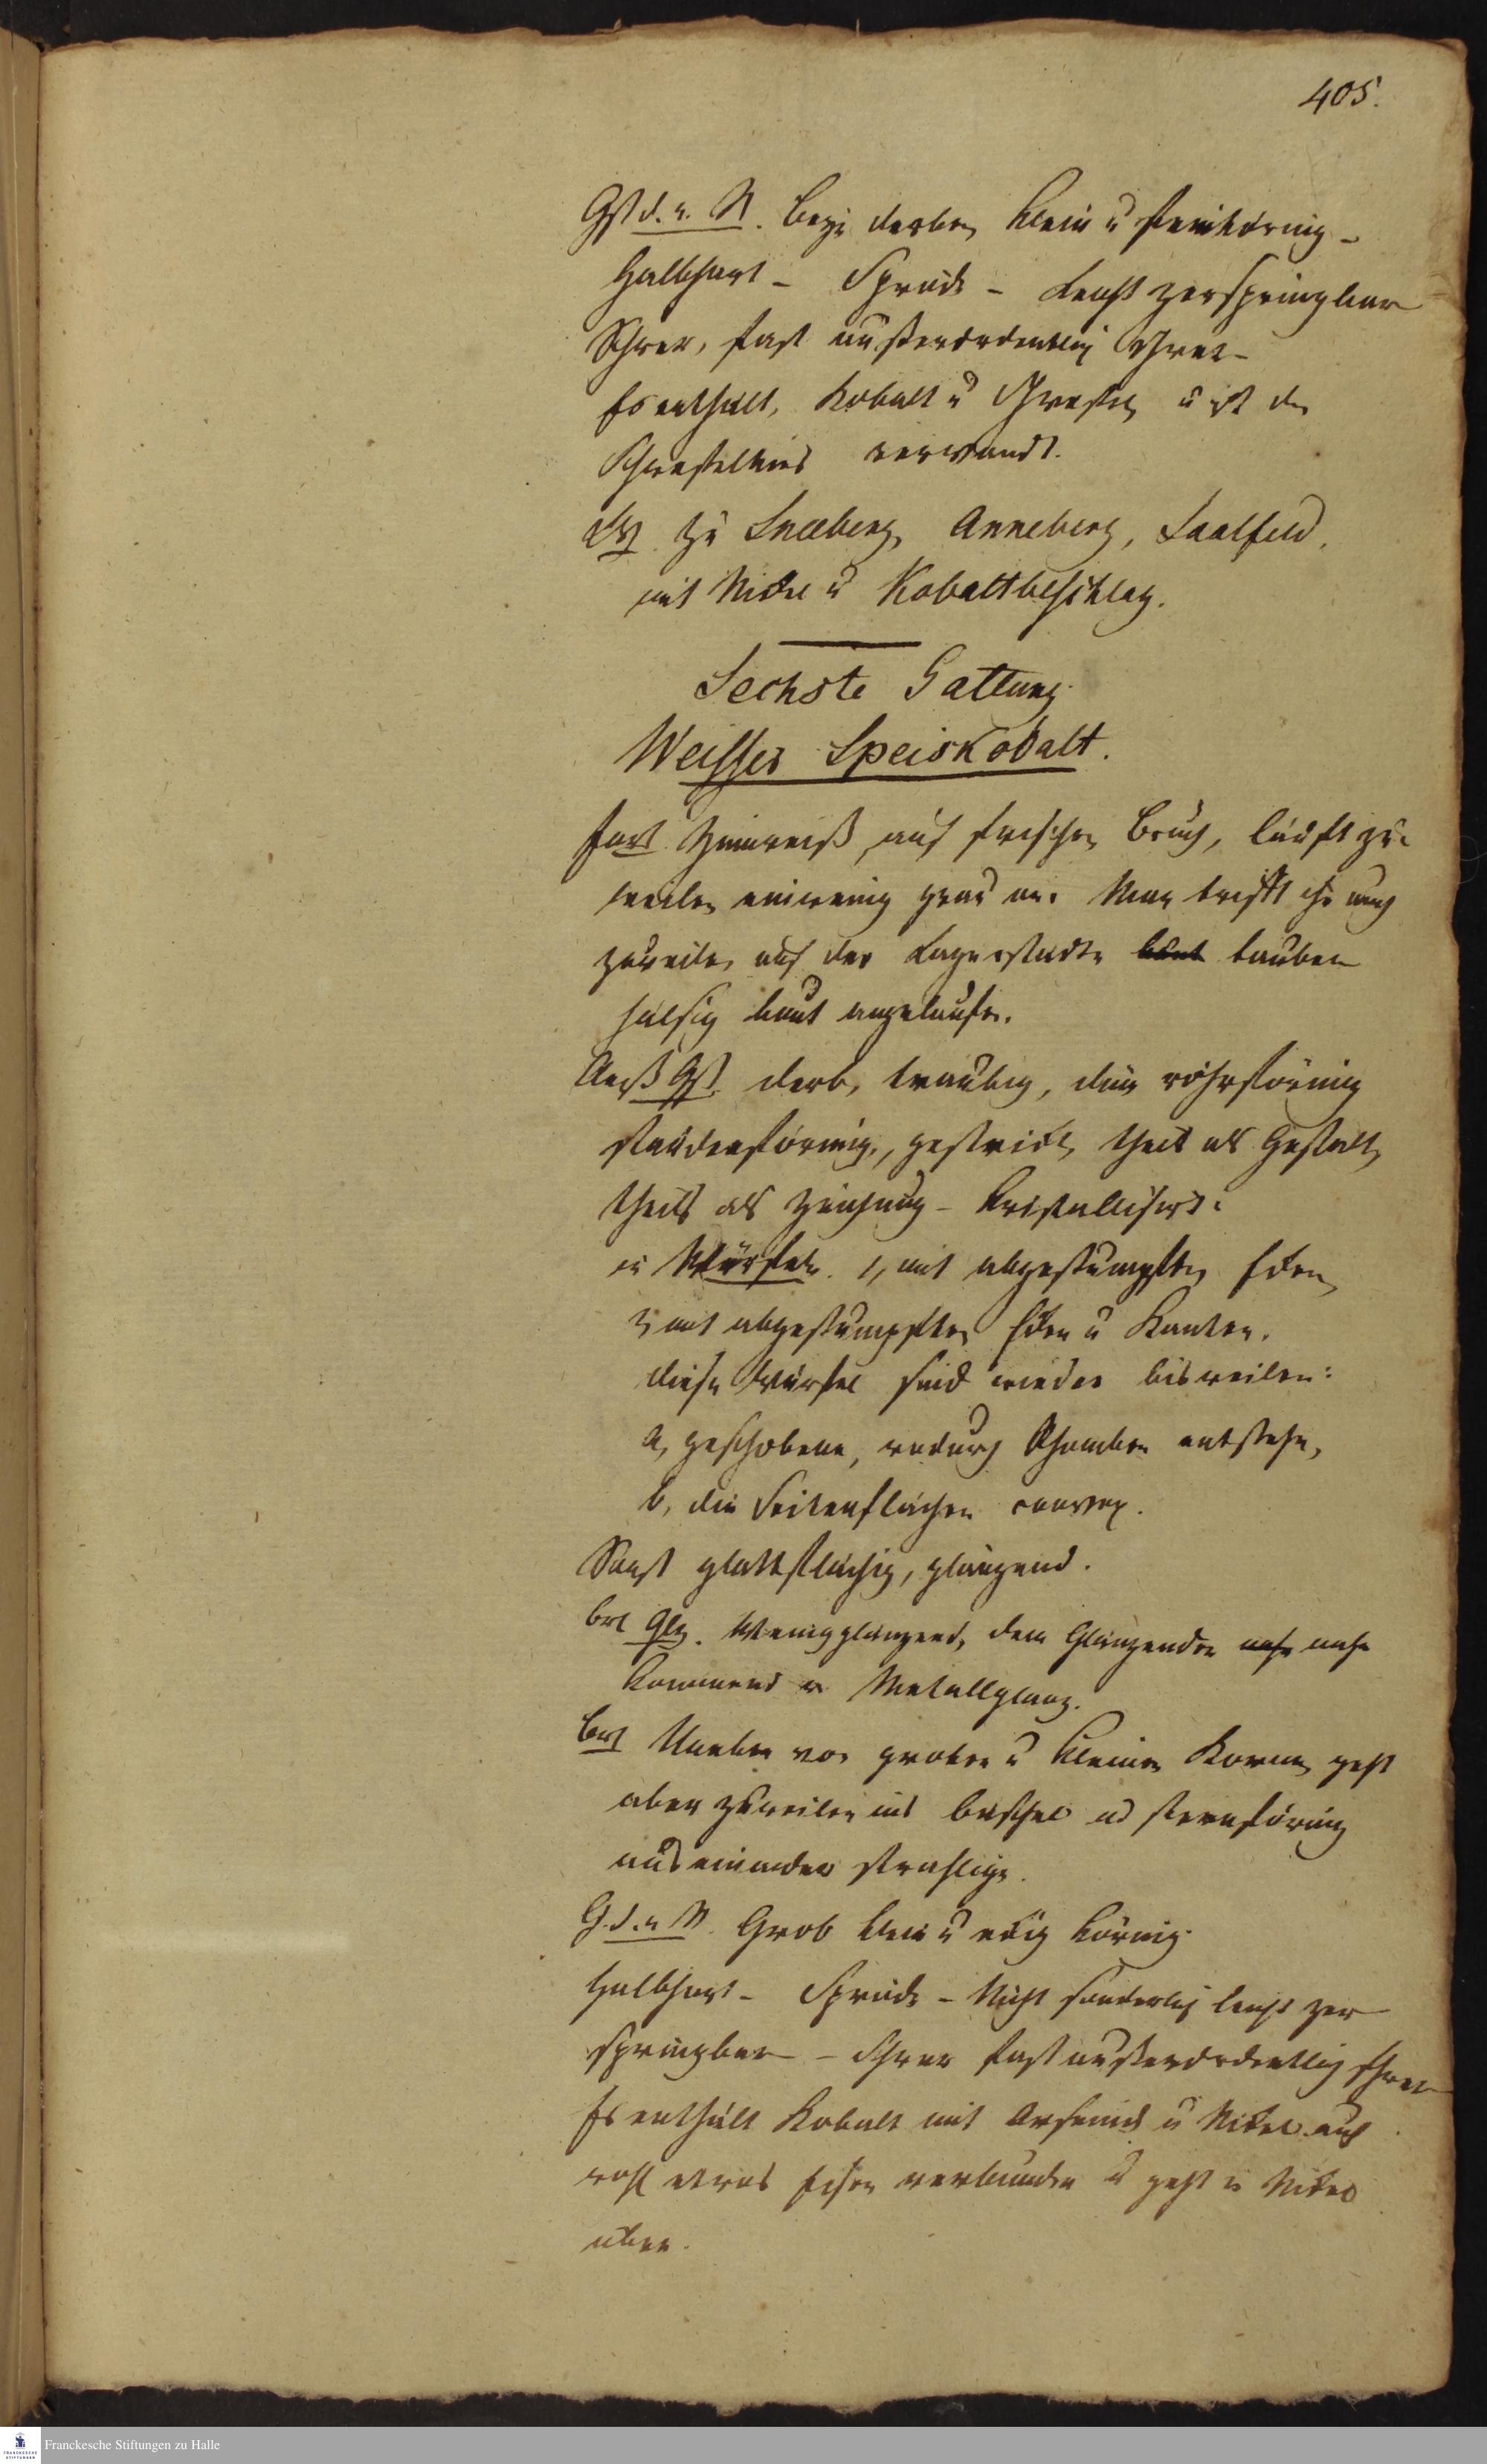 405.
Gst d. u. St. beym derben klein u feinkörnig -
Halbhart - Spröde - Leicht zerspringbar
Schwer, fast außerordentlich schwer -
Es enthält, Kobalt u Schwefel u ist dem
Schwefelkies verwandt.
zu Sneeberg, Anneberg, Saalfeld,
mit Nickel u Kobaltbeschlag.
Sechste Gattung.
Weisser Speiskobalt.
Farb. Zinnweiß auf frischen Bruch, läuft zu-
weilen ein wenig grau an. Man trifft ihn auch
zuweilen auf der Lagerstädte bunt tauben
hälsig bunt angelaufen.
Aeuß Gst. derb, traubig, dünn röhrförmig
staudenförmig, gestrickt, theils als Gestalt,
theils als Zeichnung - kristallisirt:
in Würfeln. 1, mit abgestumpften Ecken,
2, mit abgestumpften Ecken u Kanten.
diese Würfel sind wieder bisweilen:
a, geschobene, wodurch Rhomben entstehn,
b, die Seitenflächen convex.
Sonst glattflächig, glänzend.
br Glz. Wenigglänzend, dem Glänzenden nahe nahe
kommend v. Metallglanz.
br Uneben von groben u kleinen Korne, geht
aber zuweilen ins büschel u sternförmig
auseinander strahlige.
G. d. u St. Grob klein u eckig körnig.
Halbhart - Spröde - Nicht sonderlich leicht zer
springbar - Schwer fast außerordentlich schwer
Es enthält Kobalt mit Arsenik u Nickel auch
wohl etwas Eisen verbunden u geht in Nickel
über.
Franckesche Stiftungen zu Halle